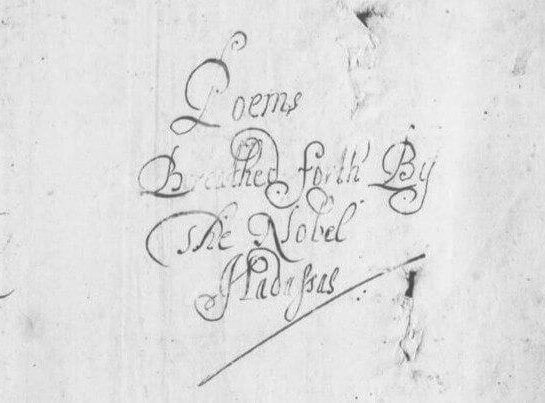 Poems
Breathed forth By
The Nobel
Hadassas